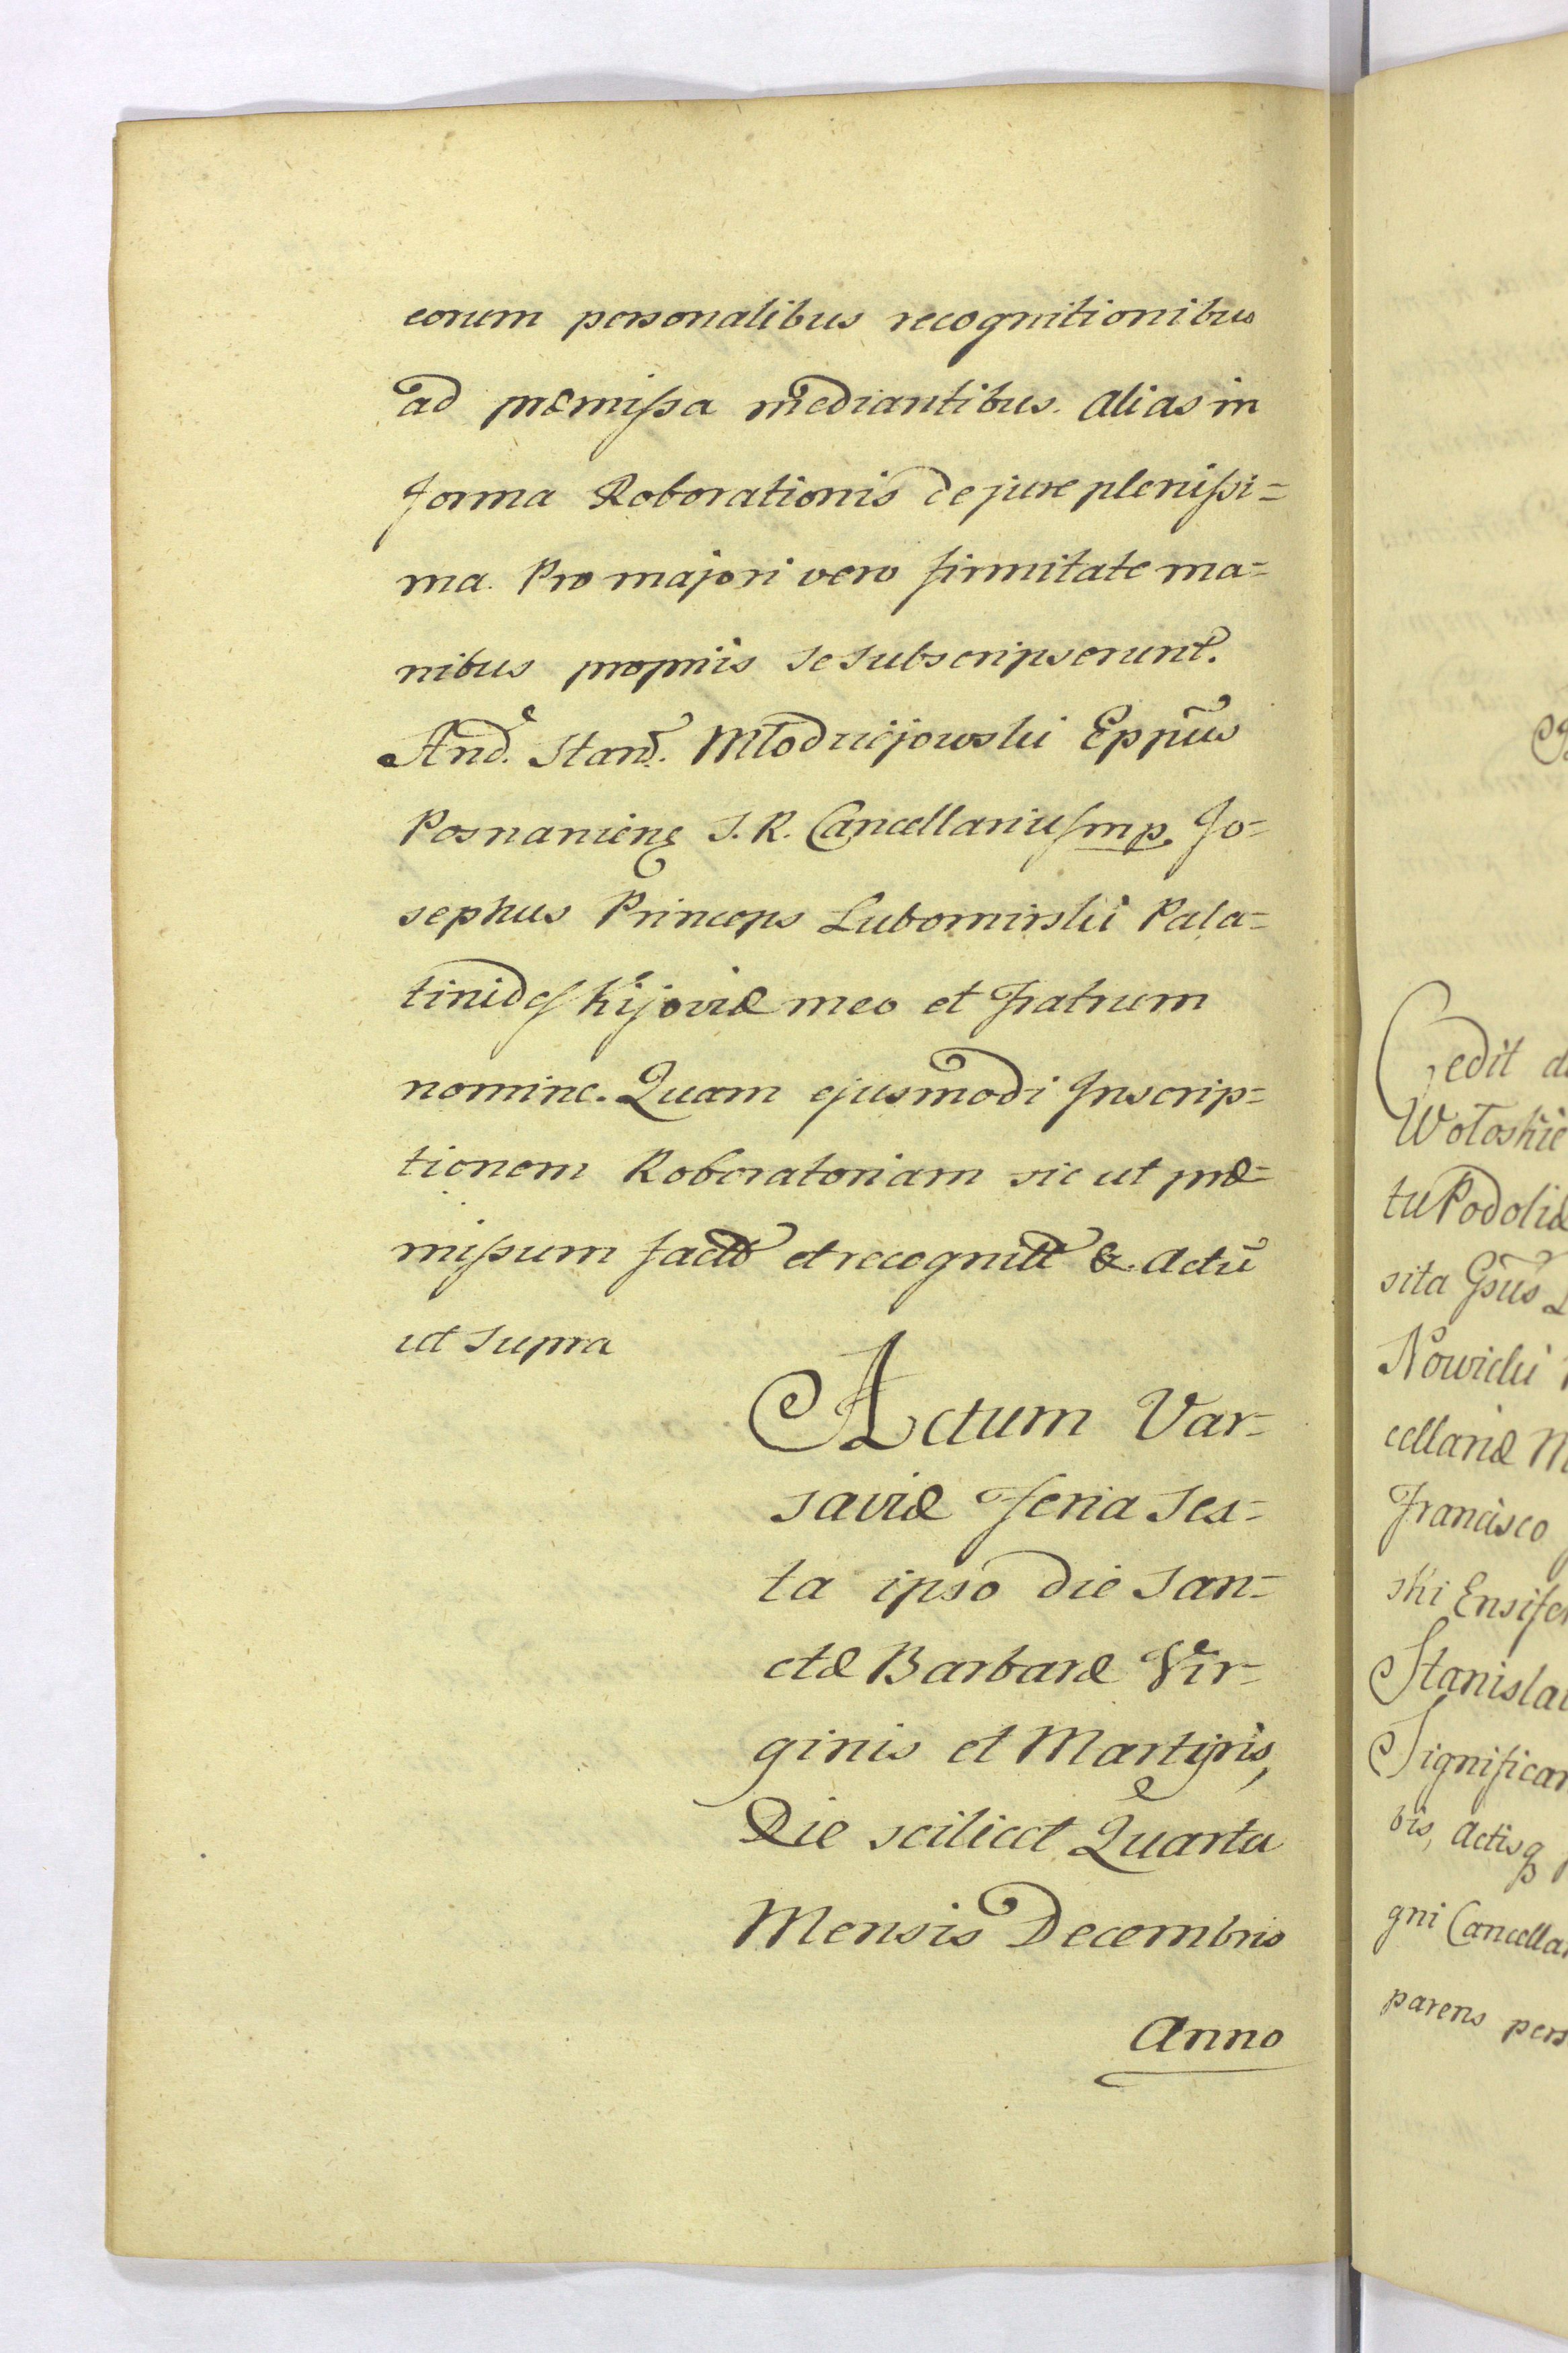 eorum personalibus recognitionibus
ad præmissa mediantibus. alias in
forma Roborationis de jure plenissi=
ma. Pro majori vero firmitate ma=
nibus propriis se subscripserunt.
And. Stan. Młodziejowski Eppũs
Posnanieñ S. R. Cancellarius mp. Jo=
sephus Princeps Lubomirski Pala=
tinides Kijoviæ meo et Fratrum
nomine. Quam ejusmodi Inscrip=
tionem Roboratoriam sic ut præ=
missum factõ et recognitt & Actũ
ut supra
Actum Var=
saviæ feria sex=
ta ipso die San=
ctæ Barbaræ Vir=
ginis et Martyris,
Die scilicet Quarta
Mensis Decembris
Anno
Cedit
Wołoskie
tu Podoliæ
sita Gsũs
Nowicki
cellariæ M
Francisco
ski Ensifer
Stanislau
Significan
bis, Actisq
gni Cancellar
parens pers